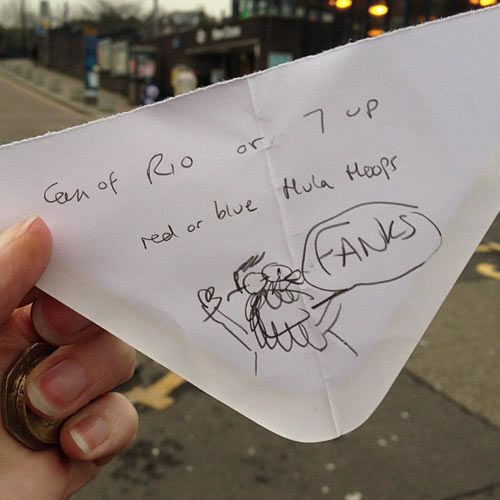 Can of Rio or 7 up
red or blue Hula Hoops
FANKS